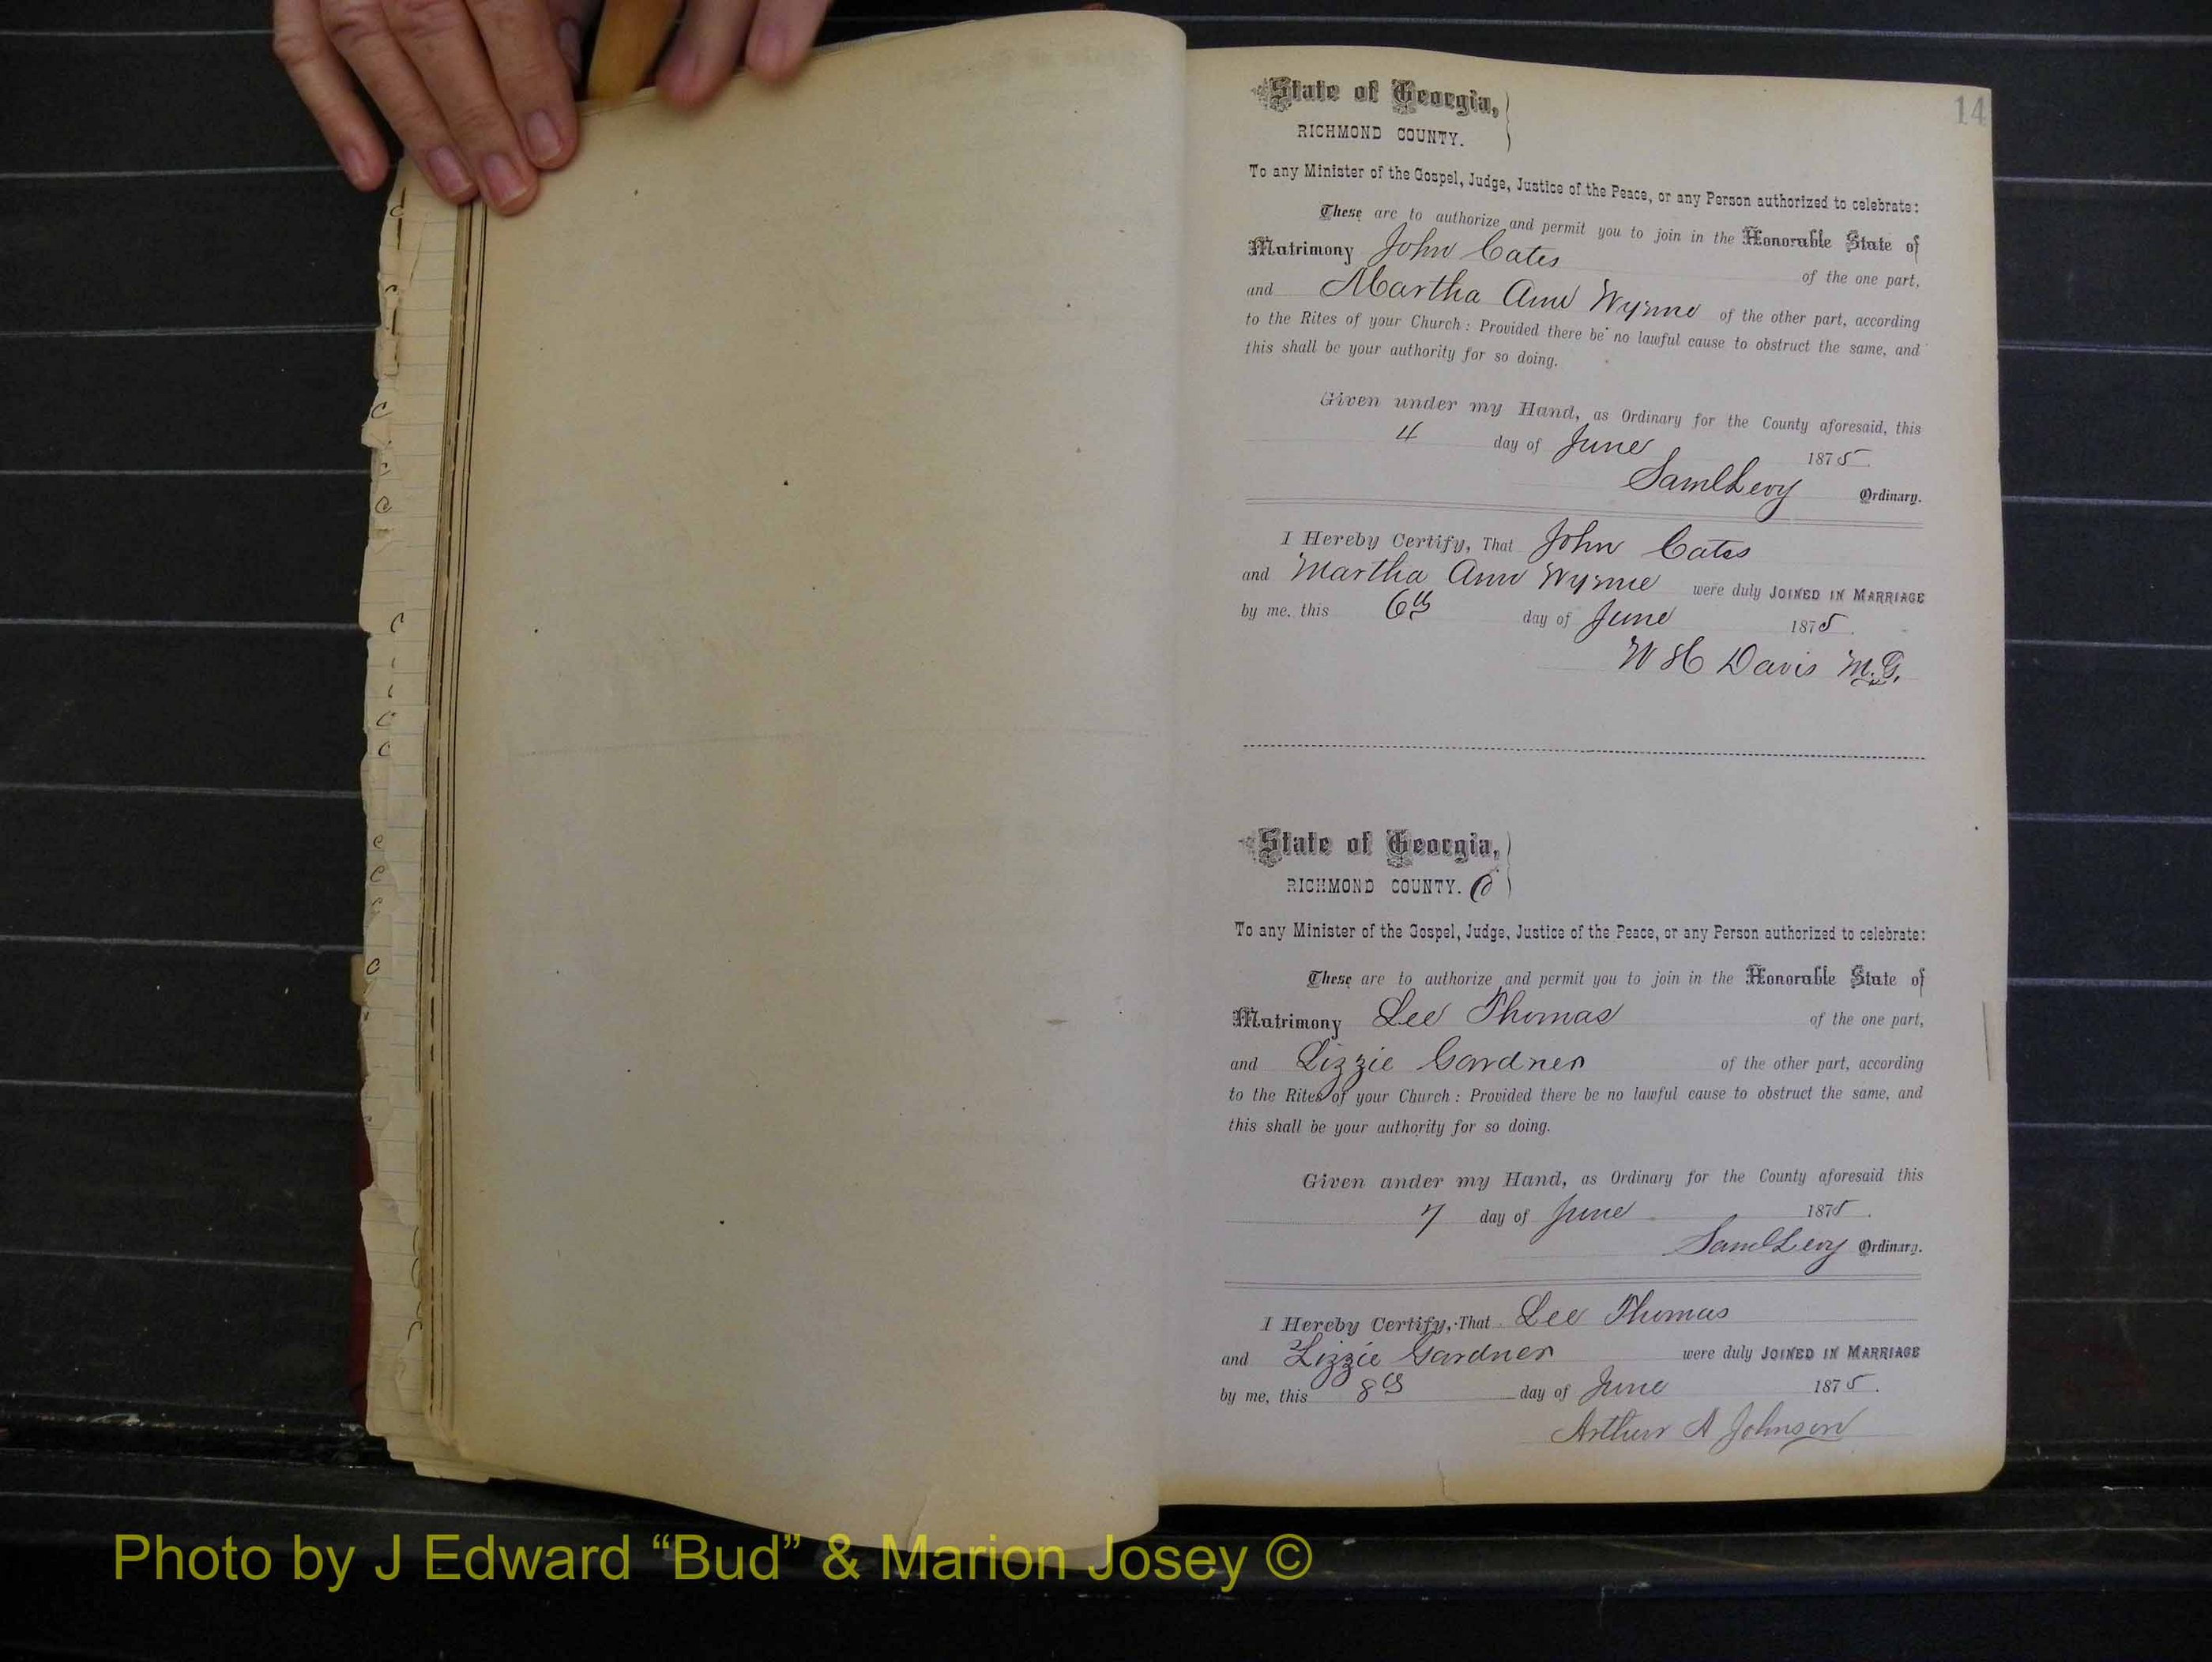 14
State of Georgia,
RICHMOND COUNTY.
To any Minister of the Gospel, Judge, Justice of the Peace, or any Person authorized to celebrate:
These are to authorize and permit you to join in the Honorable State of
Matrimony John Cates of the one part,
and Martha Ann Wynne of the other part, according
to the Rites of your Church: Provided there be no lawful cause to obstruct the same, and
this shall be your authority for so doing.
Given under my Hand, as Ordinary for the County aforesaid, this
4 day of June 1875.
Saml Levy Ordinary.
I Hereby Certify, That John Cates
and Martha Ann Wynne were duly JOINED IN MARRIAGE
by me, this 6th day of June 1875.
W H Davis M.G.
State of Georgia,
RICHMOND COUNTY.
To any Minister of the Gospel, Judge, Justice of the Peace, or any Person authorized to celebrate:
These are to authorize and permit you to join in the Honorable State of
Matrimony Lee Thomas of the one part,
and Lizzie Gardner of the other part, according
to the Rites of your Church: Provided there be no lawful cause to obstruct the same, and
this shall be your authority for so doing.
Given under my Hand, as Ordinary for the County aforesaid this
7 day of June 1875.
Saml Levy Ordinary.
I Hereby Certify, That Lee Thomas
and Lizzie Gardner were duly JOINED IN MARRIAGE
by me, this 8th day of June 1875.
Arthur A Johnson
Photo by J Edward “Bud” & Marion Josey ©